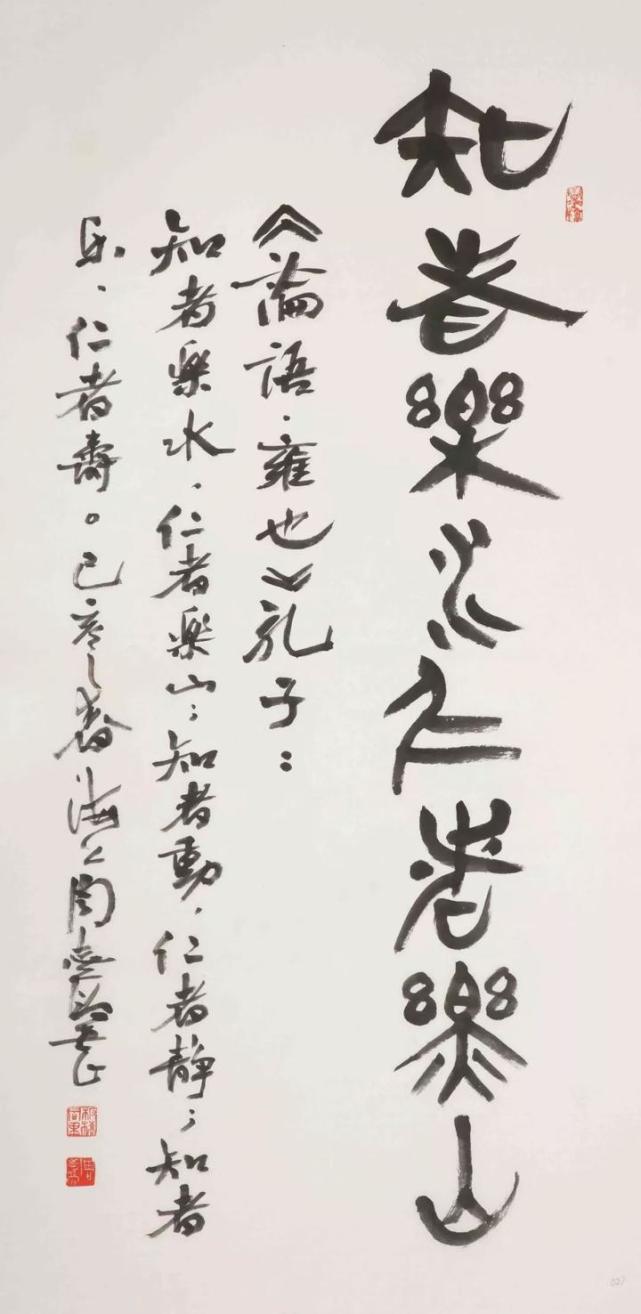 知者樂水仁者樂山
《論語·雍也》孔子：
知者樂水，仁者樂山；知者動，仁者静；知者
乐，仁者壽。己亥之春海上周